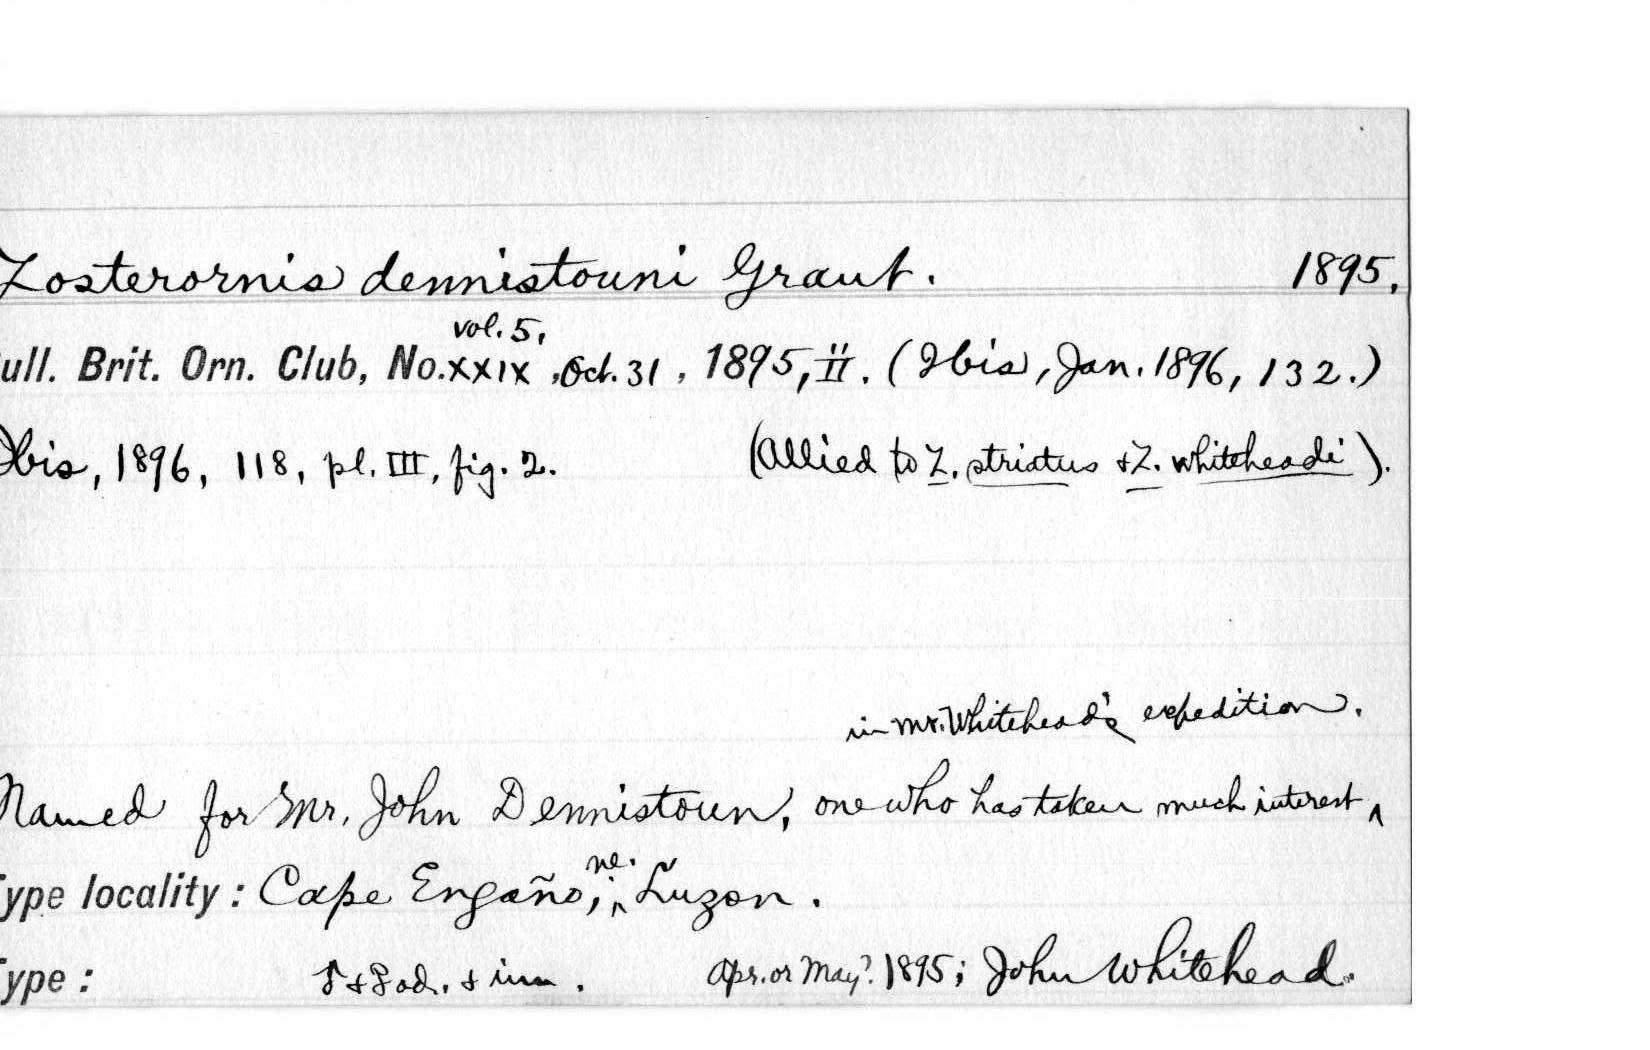 Zosterornis dennistouni Grant. 1895.
vol. 5,
ull. Brit. Orn. Club, No. XXIX, Oct. 31, 1895, ii. (Ibis, Jan. 1896, 132.)
Ibis, 1896, 118, pl. III, fig. 2. (Allied to Z. striatus + Z. whiteheadi).
in Mr. Whitehead's expedition.
Named for Mr. John Dennistoun, one who has taken much interest ^
ne.
Type locality: Cape Engaño, ^ Luzon.
Type: ♂ + ♀ ad. + imm. Apr. or May? 1895; John Whitehead.